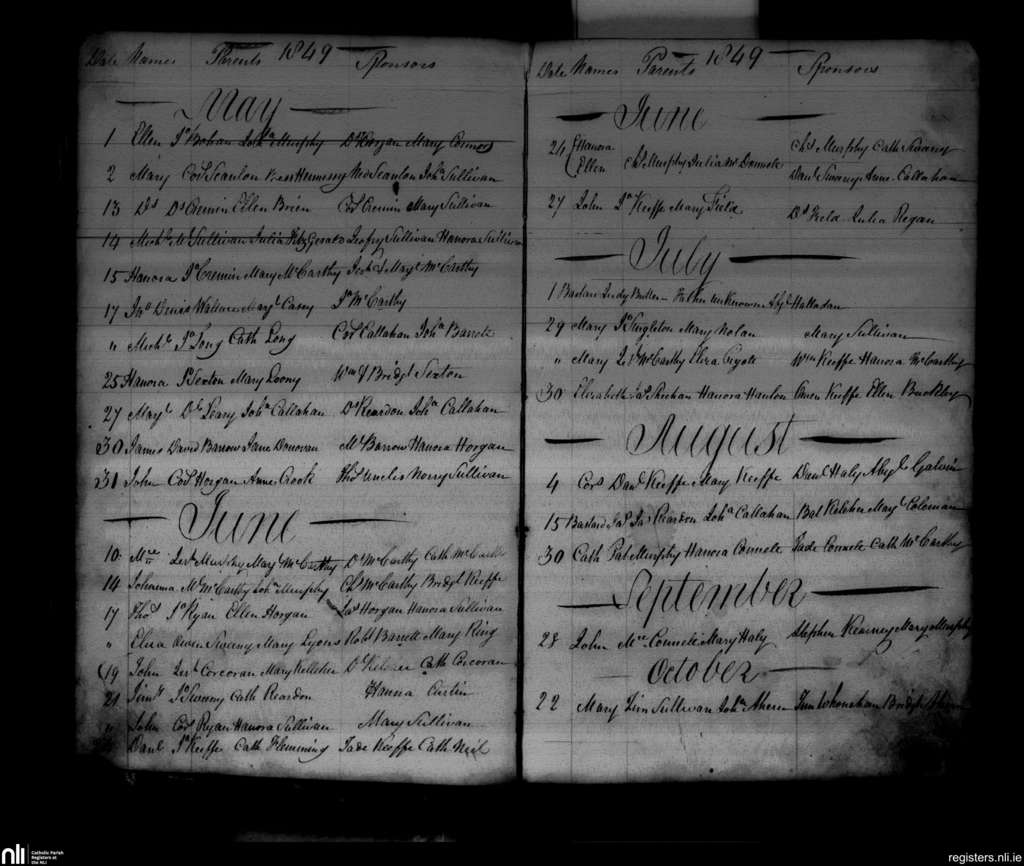 Date Names Parents 1849 Sponsors
May
1 Ellen Jo Bohan Joha Murphy Ds Horgan Mary Connors
2 Mary Cors Scanlon Bess Hennessy Ned Scanlon Joha Sullivan
13 Ds Ds Cremin Ellen Brien Cors Cremin Mary Sullivan
14 Michl Ml Sullivan Julia FitzGerald Jeofry Sullivan Hanora Sullivan
15 Hanora Jo Cremin Mary McCarthy Jerh & Mayt McCarthy
17 Jas Denis Wallace Mayt Casey Jo McCarthy
" Michl Jo Long Cath Long Cors Callahan Joha Barrett
25 Hanora Jo Sexton Mary Loony Wm & Bridgt Sexton
27 Mayt Ds Leary Joha Callahan Ds Reardon Joha Callahan
30 James David Barrow Jane Donovan Ml Barrow Hanora Horgan
31 John Cors Horgan Anne Crooke Thos Uncles Norry Sullivan
June
10 Mce Jerh Murphy Mayt McCarthy Ds McCarthy Cath McCarthy
14 Johanna Ml McCarthy Joha Murphy Chs McCarthy Bridgt Keeffe
17 Thos Jo Ryan Ellen Horgan Jas Horgan Hanora Sullivan
" Eliza Owen Sweeny Mary Lyons Robt Barrett Mary Ring
19 John Jerh Corcoran Mary Kelleher Ds Keleher Cath Corcoran
21 Timy Jo Cath Reardon Hanora Curtin
" John Cors Ryan Hanora Sullivan Mary Sullivan
Danl Jo Keeffe Cath Flemming Jade Keeffe Cath Neil
Date Names Parents 1849 Sponsors
June
24 Hanora Ellen Chs Murphy Julia Mc Donnele Chs Murphy Cath Sweeny
Danl Sweeny Anne Callahan
27 John Jo Keeffe Mary Field Ds Field Julia Regan
July
1 Bastard Judy Bullen Father unknown Abgl Halladan
29 Mary Jo Singleton Mary Nolan Mary Sullivan
" Mary Jerh McCarthy Eliza Wm Keeffe Hanora McCarthy
30 Elizabeth Jas Sheehan Hanora Hanlon Owen Keeffe Ellen Buckley
August
4 Cors Danl Keeffe Mary Keeffe Danl Haly Abgl Galvin
15 Bastard Jas Jas Reardon Joha Callahan Bat Keleher Mayt Coleman
30 Cath Pat Murphy Hanora Connele Jade Connele Cath McCarthy
September
28 John Mce Connele Mary Haly Stephen Kearney Mary Murphy
October
22 Mary Tim Sullivan Joha Ahern Tim Bridgt Ahern
nli Catholic Parish
Registers at
the NLI
registers.nli.ie